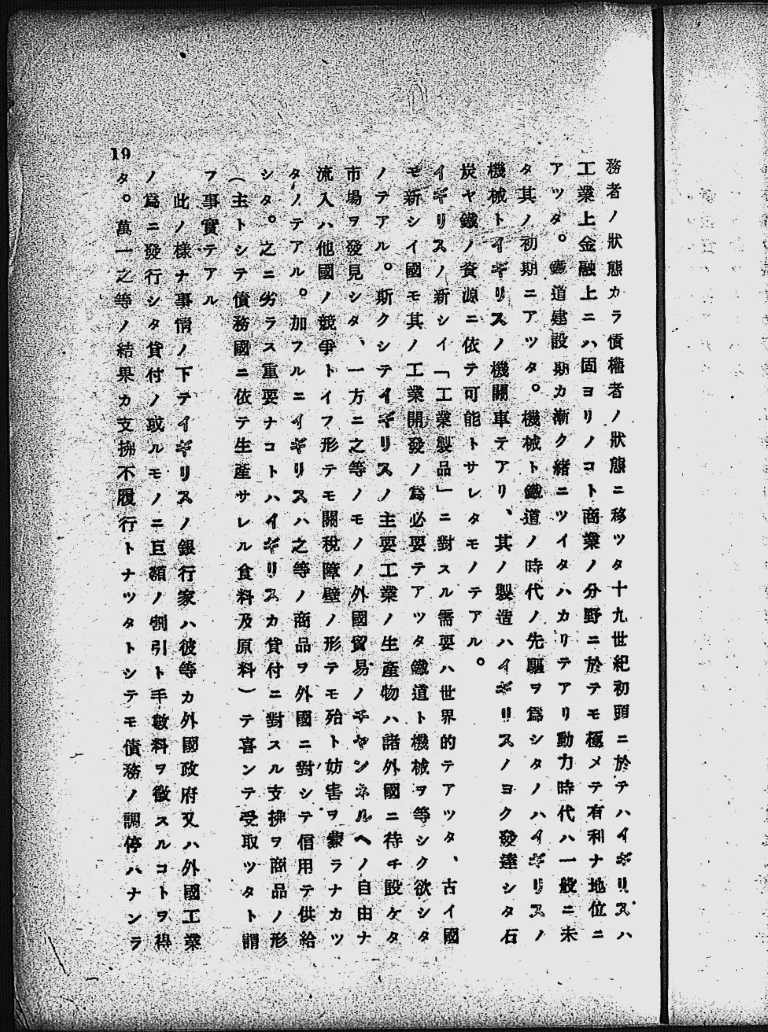 務者ノ狀態カラ債權者ノ狀態ニ移ツタ十九世紀初頭ニ於テハイギリスハ
工業上金融上ニハ固ヨリノコト商業ノ分野ニ於テモ極メテ有利ナ地位ニ
アツタ。鐵道建設期カ漸ク緖ニツイタハカリテアリ動力時代ハ一般ニ未
タ其ノ初期ニアツタ。機械ト鐵道ノ時代ノ先驅ヲ爲シタノハイギリスノ
機械トイギリスノ機關車テアリ、其ノ製造ハイギリスノヨク發達シタ石
炭ヤ鐵ノ資源ニ依テ可能トサレタモノテアル。
イギリスノ新シイ「工業製品」ニ對スル需要ハ世界的テアツタ、古イ國
モ新シイ國モ其ノ工業開發ノ爲必要テアツタ鐵道ト機械ヲ等シク欲シタ
ノテアル。斯クシテイギリスノ主要工業ノ生產物ハ諸外國ニ待チ設ケタ
市場ヲ發見シタ、一方ニ之等ノモノノ外國貿易ノチヤンネルヘノ自由ナ
流入ハ他國ノ競爭トイフ形テモ關稅障壁ノ形テモ殆ト妨害ヲ蒙ラナカツ
タノテアル。加フルニイギリスハ之等ノ商品ヲ外國ニ對シテ信用テ供給
シタ。之ニ劣ラス重要ナコトハイギリスカ貸付ニ對スル支拂ヲ商品ノ形
（主トシテ債務國ニ依テ生產サレル食料及原料）テ喜ンテ受取ツタト謂
フ事實テアル
此ノ樣ナ事情ノ下テイギリスノ銀行家ハ彼等カ外國政府又ハ外國工業
ノ爲ニ發行シタ貸付ノ或ルモノニ巨額ノ割引ト手數料ヲ徵スルコトヲ得
タ。萬一之等ノ結果カ支拂不履行トナツタトシテモ債務ノ調停ハナンラ
19